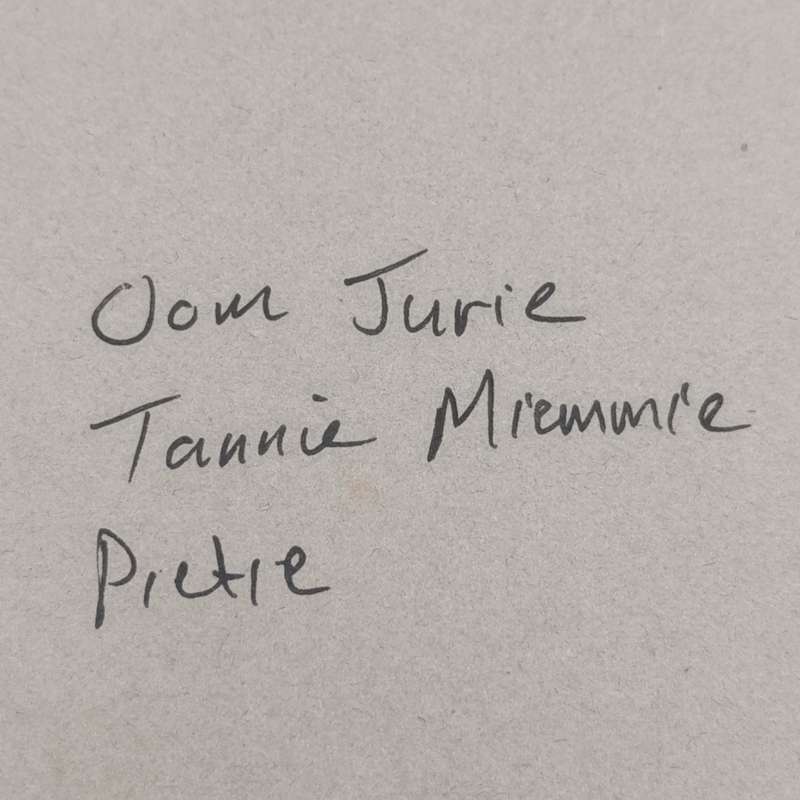 Oom Jurie
Tannie Miemmie
Pietie